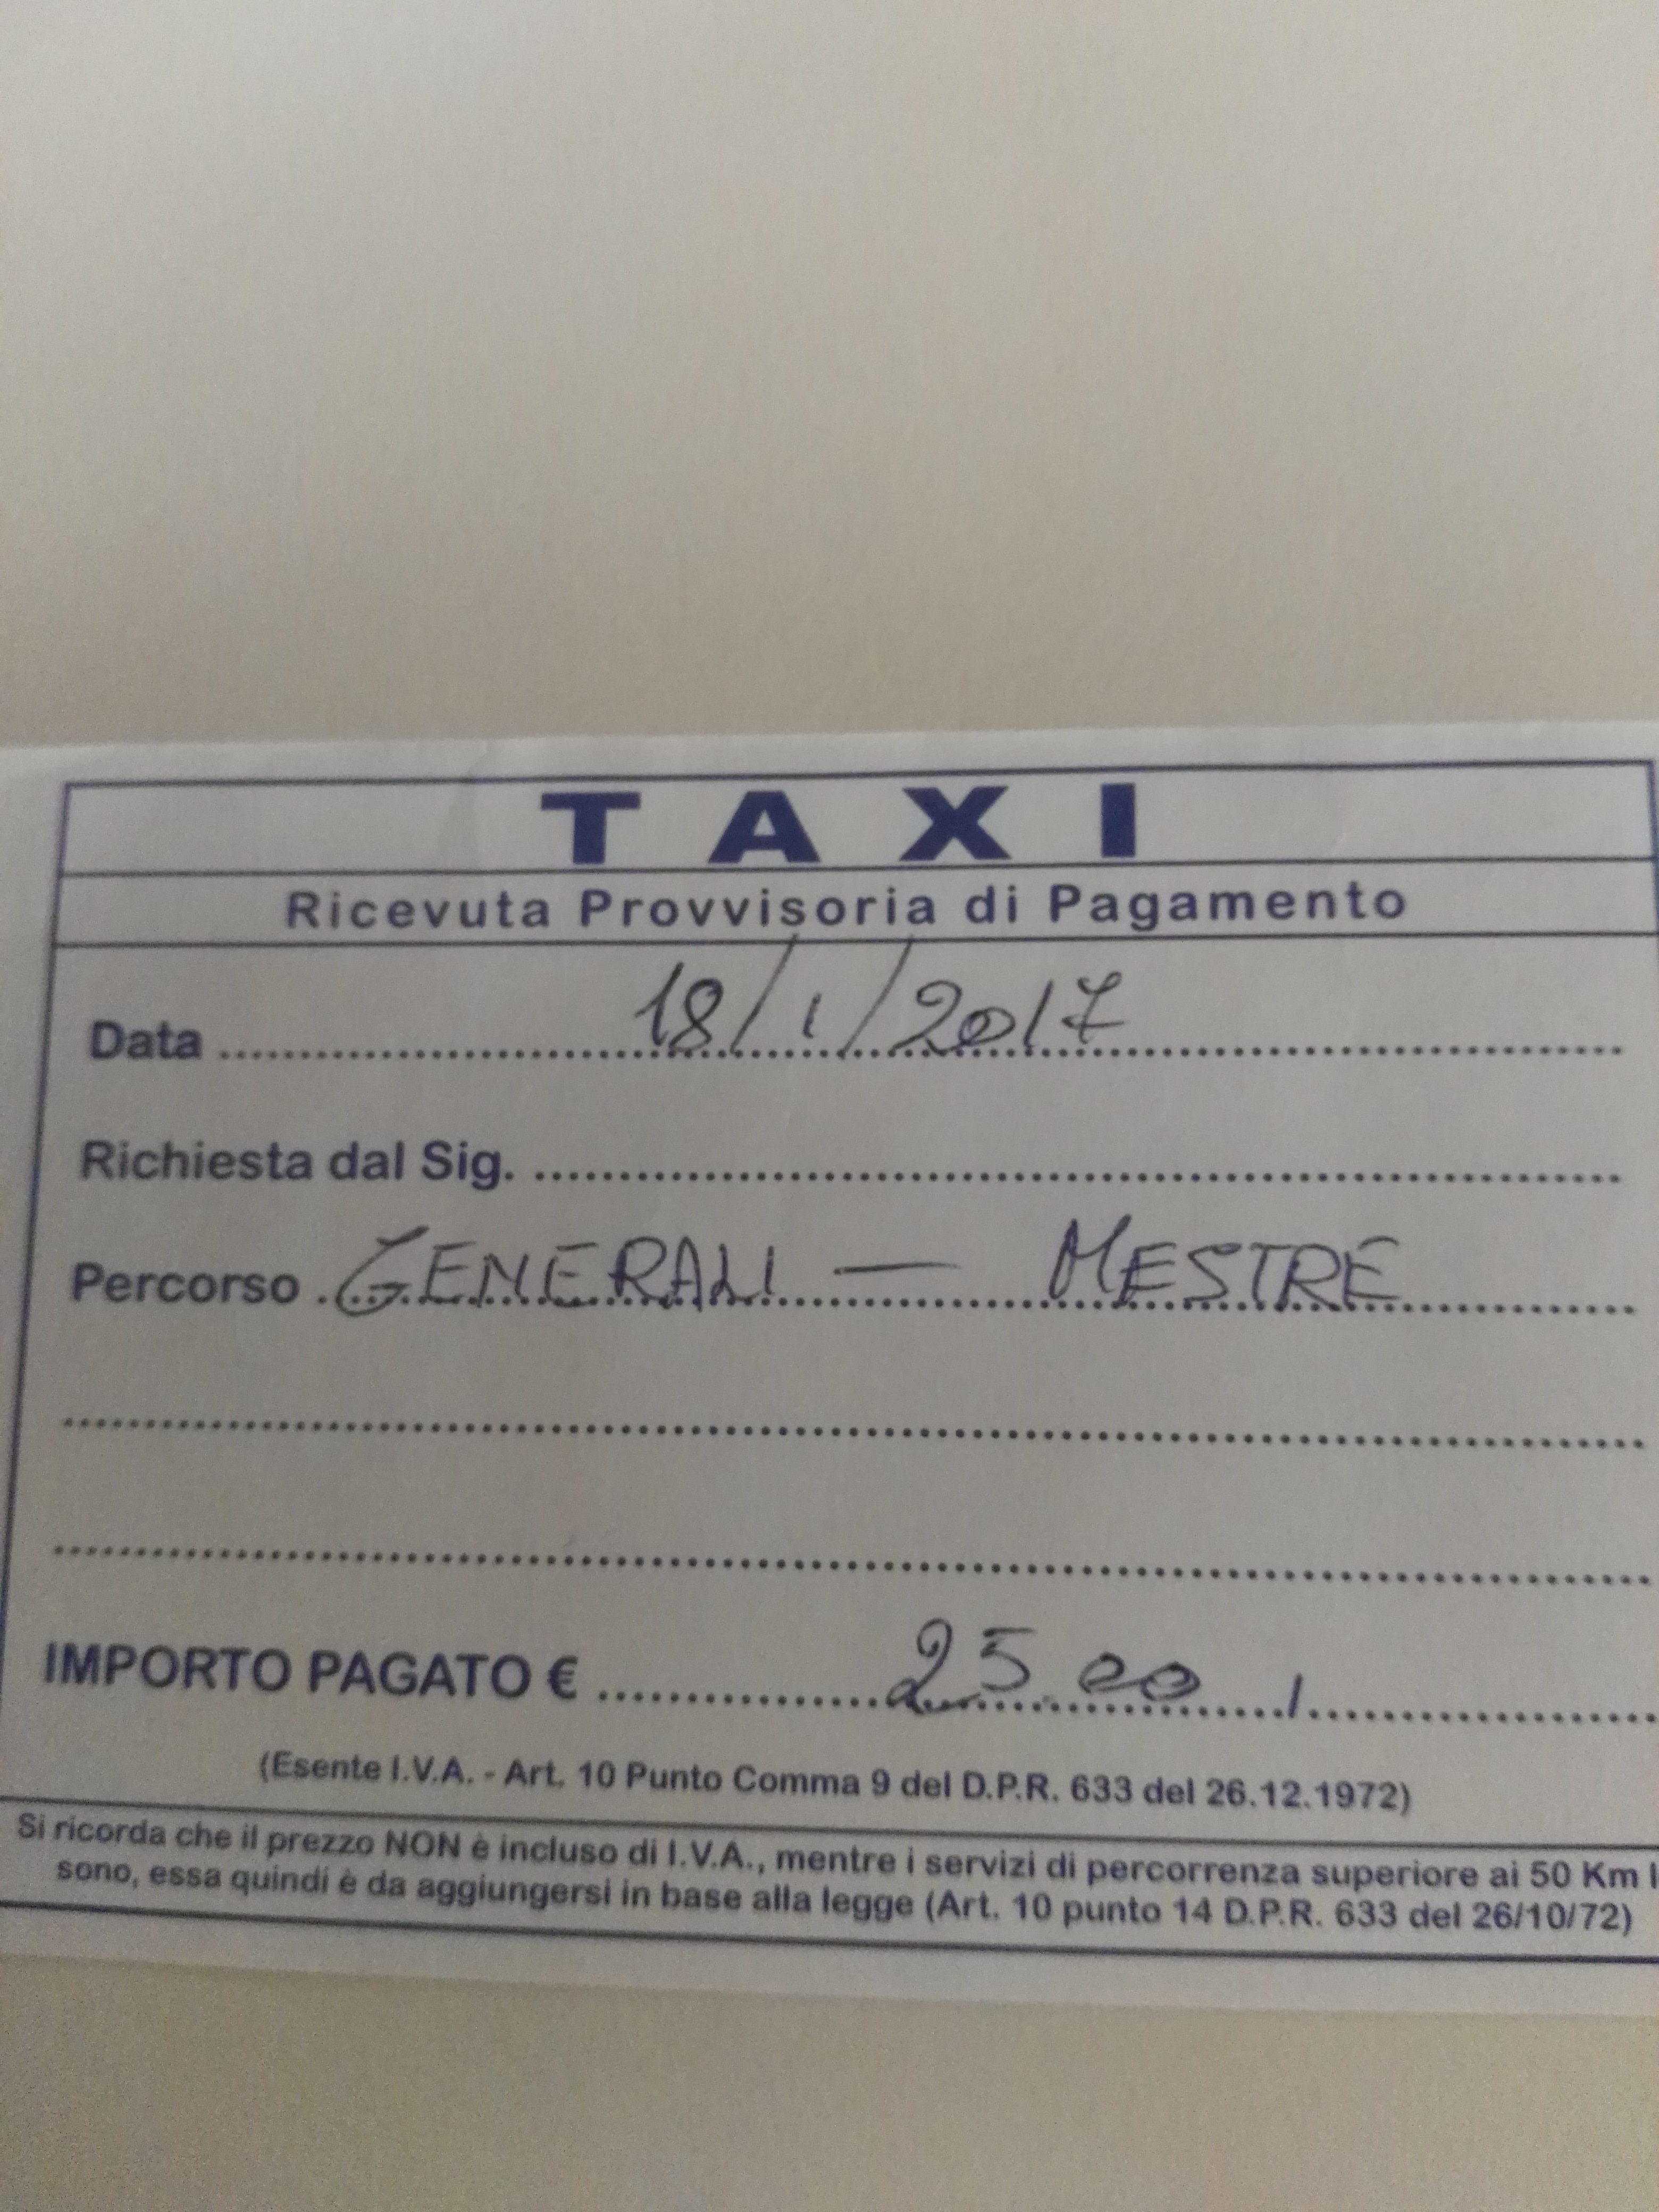 TAXI
Ricevuta Provvisoria di Pagamento
Data 18/1/2017
Richiesta dal Sig.
Percorso GENERALI — MESTRE
IMPORTO PAGATO € 25.00
(Esente I.V.A. - Art. 10 Punto Comma 9 del D.P.R. 633 del 26.12.1972)
Si ricorda che il prezzo NON è incluso di I.V.A., mentre i servizi di percorrenza superiore ai 50 Km
sono, essa quindi è da aggiungersi in base alla legge (Art. 10 punto 14 D.P.R. 633 del 26/10/72)